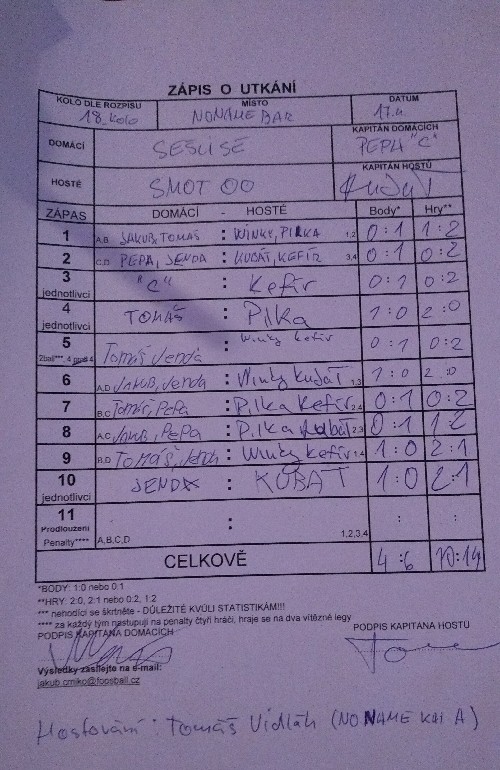 ZÁPIS O UTKÁNÍ
KOLO DLE ROZPISU MÍSTO DATUM
18. kolo NONAME BAR 17.4
DOMÁCÍ SEŠLI SE KAPITÁN DOMÁCÍCH PEPA "C"
HOSTÉ SMOT OO KAPITÁN HOSTŮ KUBÁT
ZÁPAS DOMÁCÍ - HOSTÉ Body* Hry**
1 A,B JAKUB, TOMÁŠ : WINKY, PILKA 1,2 0:1 1:2
2 C,D PEPA, JENDA : KUBÁT, KEFÍR 3,4 0:1 0:2
3 jednotlivci "C" : Kefír 0:1 0:2
4 jednotlivci TOMÁŠ : Pilka 1:0 2:0
5 2ball***, 4 proti 4 Tomáš Jenda : Winky Kefír 0:1 0:2
6 A,D Jakub, Jenda : Winky Kubát 1,3 1:0 2:0
7 B,C Tomáš, Pepa : Pilka Kefír 2,4 0:1 0:2
8 A,C Jakub, Pepa : Pilka Kubát 2,3 0:1 1:2
9 B,D Tomáš, Jenda : Winky Kefír 1,4 1:0 2:1
10 jednotlivci JENDA : KUBÁT 1:0 2:1
11 Prodloužení Penalty**** A,B,C,D : 1,2,3,4 : :
CELKOVĚ 4:6 10:14
*BODY: 1:0 nebo 0:1
**HRY: 2:0, 2:1 nebo 0:2, 1:2
*** nehodící se škrtněte - DŮLEŽITÉ KVŮLI STATISTIKÁM!!!
**** za každý tým nastupují na penalty čtyři hráči, hraje se na dva vítězné legy
PODPIS KAPITÁNA DOMÁCÍCH PODPIS KAPITÁNA HOSTŮ
Výsledky zasílejte na e-mail:
jakub.cmiko@foosball.cz
Hostování: Tomáš Vidlák (NONAME KHI A)